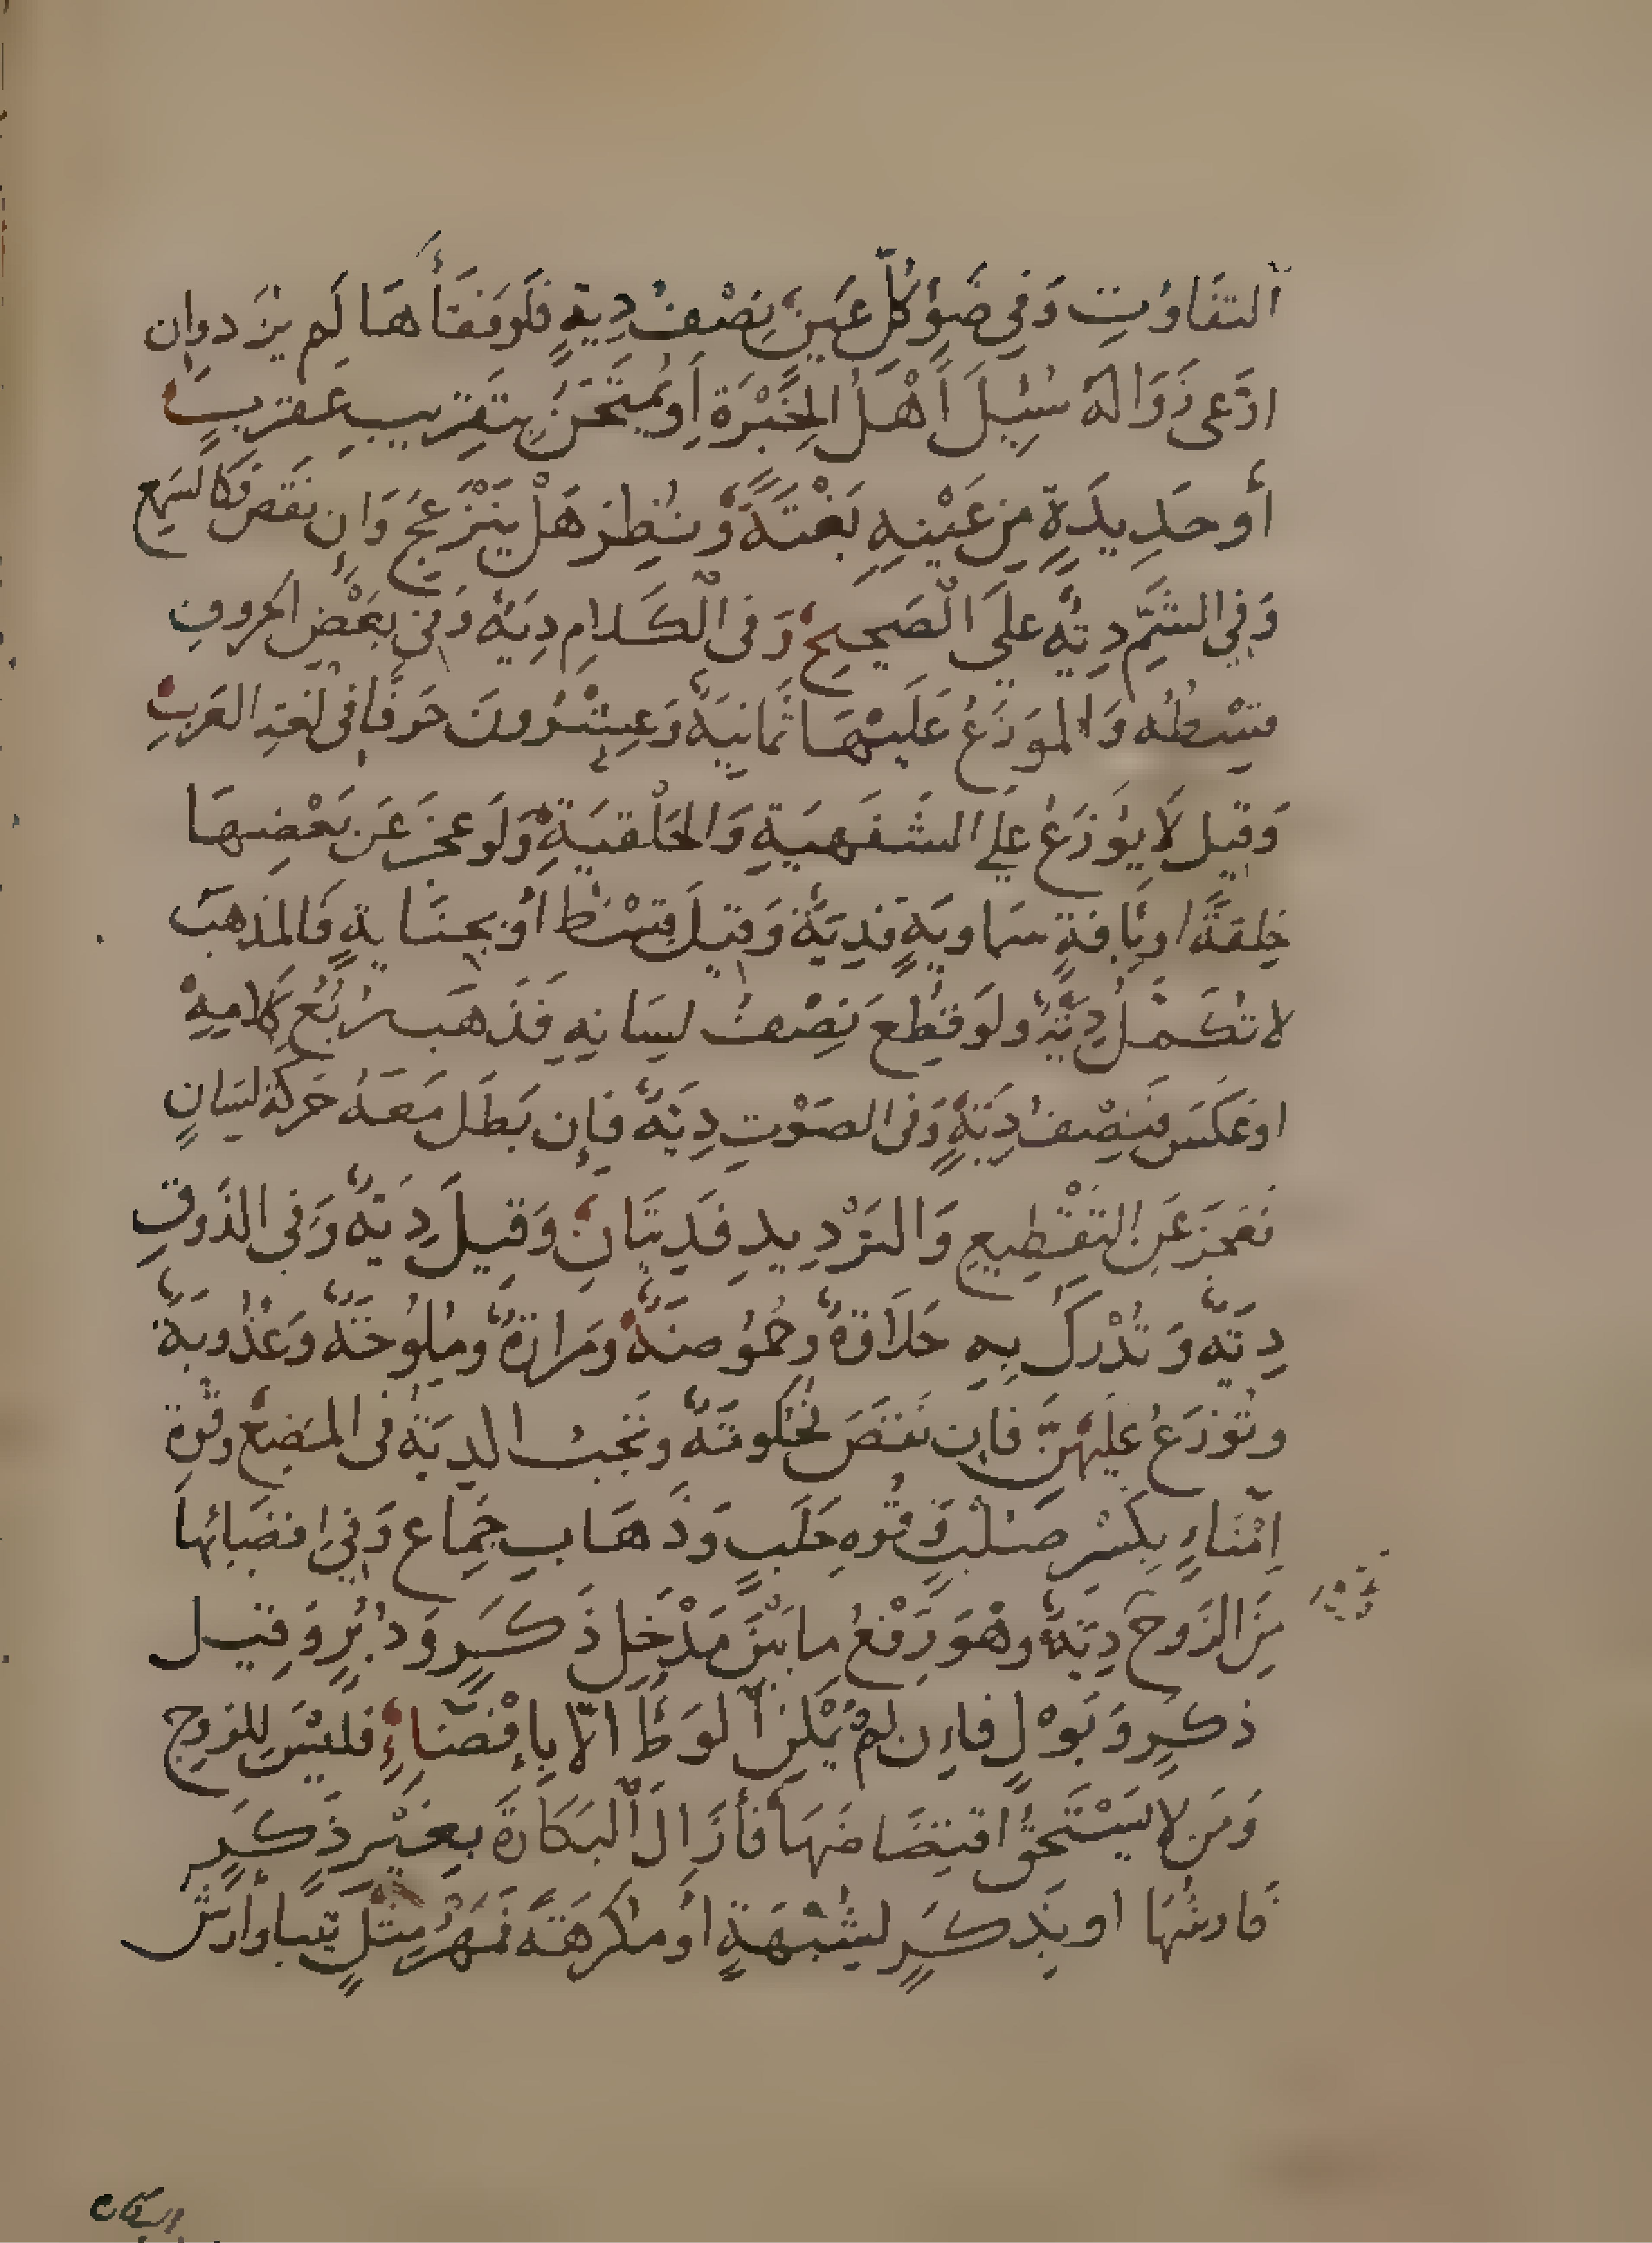 التفَاوُتِ وَفِي ضَوْءِ كُلِّ عَيْنٍ نِصْفُ دِيَةٍ فَلَوْ فَقَأَهَا لَم يزَد وان
ادَّعى زَوَالهُ سُئِلَ أَهْلُ الخِبْرَةِ اَو يُمتَحَنُ بِتَقرِيبِ عَقربٍ
أو حَدِيدَةٍ مِن عَيْنِهِ بَغْتَةً وَنُظِرَ هَلْ يَنْزَعِجُ وَاِن نقَصَ فكالسَمع
وَفي الشَمِّ دِيَةٌ علَى الْصَحِيحِ وَفى الْكَلامِ دِيَةٌ وَفي بعَضِ الحروفِ
قِسْطُه وَالموَزَّعُ عَلَيْهَا ثَمانيَةٌ وَعِشْرُونَ حَرفًا فى لغَةِ العَربِ
وَقيل لَا يُوَزَّعُ علَى الشَفَهيَةِ وَالحَلْقيَةِ وَلَو عجَزَ عَن بَعْضِهَا
خِلقَةً او بِآفةٍ سمَاويَةٍ فَدِيَةٌ وَقيلَ قِسْطٌ أوْ بجنَايةٍ فَالمَذهبُ
لا تُكَمَّلُ دِيَةٌ ولَو قطِعَ نِصْفُ لسَانِهِ فَذَهَبَ رُبُعُ كَلامِهِ
اوعَكَسَ فَنِصْفُ دِيَةٍ وَفى الصَوْتِ دِيَةٌ فَإِن بَطَل مَعَهُ حَرَكَةُ لسَانٍ
فَعَجَزَ عَنِ التَقْطِيعِ وَالتَرْدِيدِ فَدِيَتَانِ وَقِيلَ دِيَةٌ وَفى الذَوقِ
دِيَةٌ وَتُدْرَكُ بِهِ حَلَاوَةٌ وحُمُوضَةٌ ومَرارَةٌ ومُلُوحَةٌ وَعُذُوبَةٌ
وتُوَزَّعُ عَلَيْهِنَّ فَإِن نَقَصَ فحُكُومَةٌ وتَجِبُ الدِيَةُ فى المَضغِ وقُوةِ
اِمْنَاءٍ بِكَسْرِ صُلْبٍ وَقُوةِ حَبَلٍ وَذَهَابِ جِمَاع وَفي اِفضَائِهَا
مِنَ الزَوجِ دِيَةٌ وهُوَ رَفْعُ مابَيْنَ مَدْخَلِ ذَكَرٍ وَدُبُرٍ وَقِيل
ذكَرٍ وَبَوْلٍ فَإِن لَمْ يُمْكِن الوَطْءُ الّا بِإِفْضَاءٍ فَليْسَ لِلزوجِ
وَمَن لا يَسْتَحِقُّ افتِضَاضَهَا فَأَزَالَ الْبَكَارَةَ بِغَيْرِ ذَكَرٍ
فَارشُهَا او بِذَكَرٍ لشُبْهَةٍ اَو مكرَهَةً فَمَهْرُ مِثْلٍ ثيبا وَارشُ
البكارة